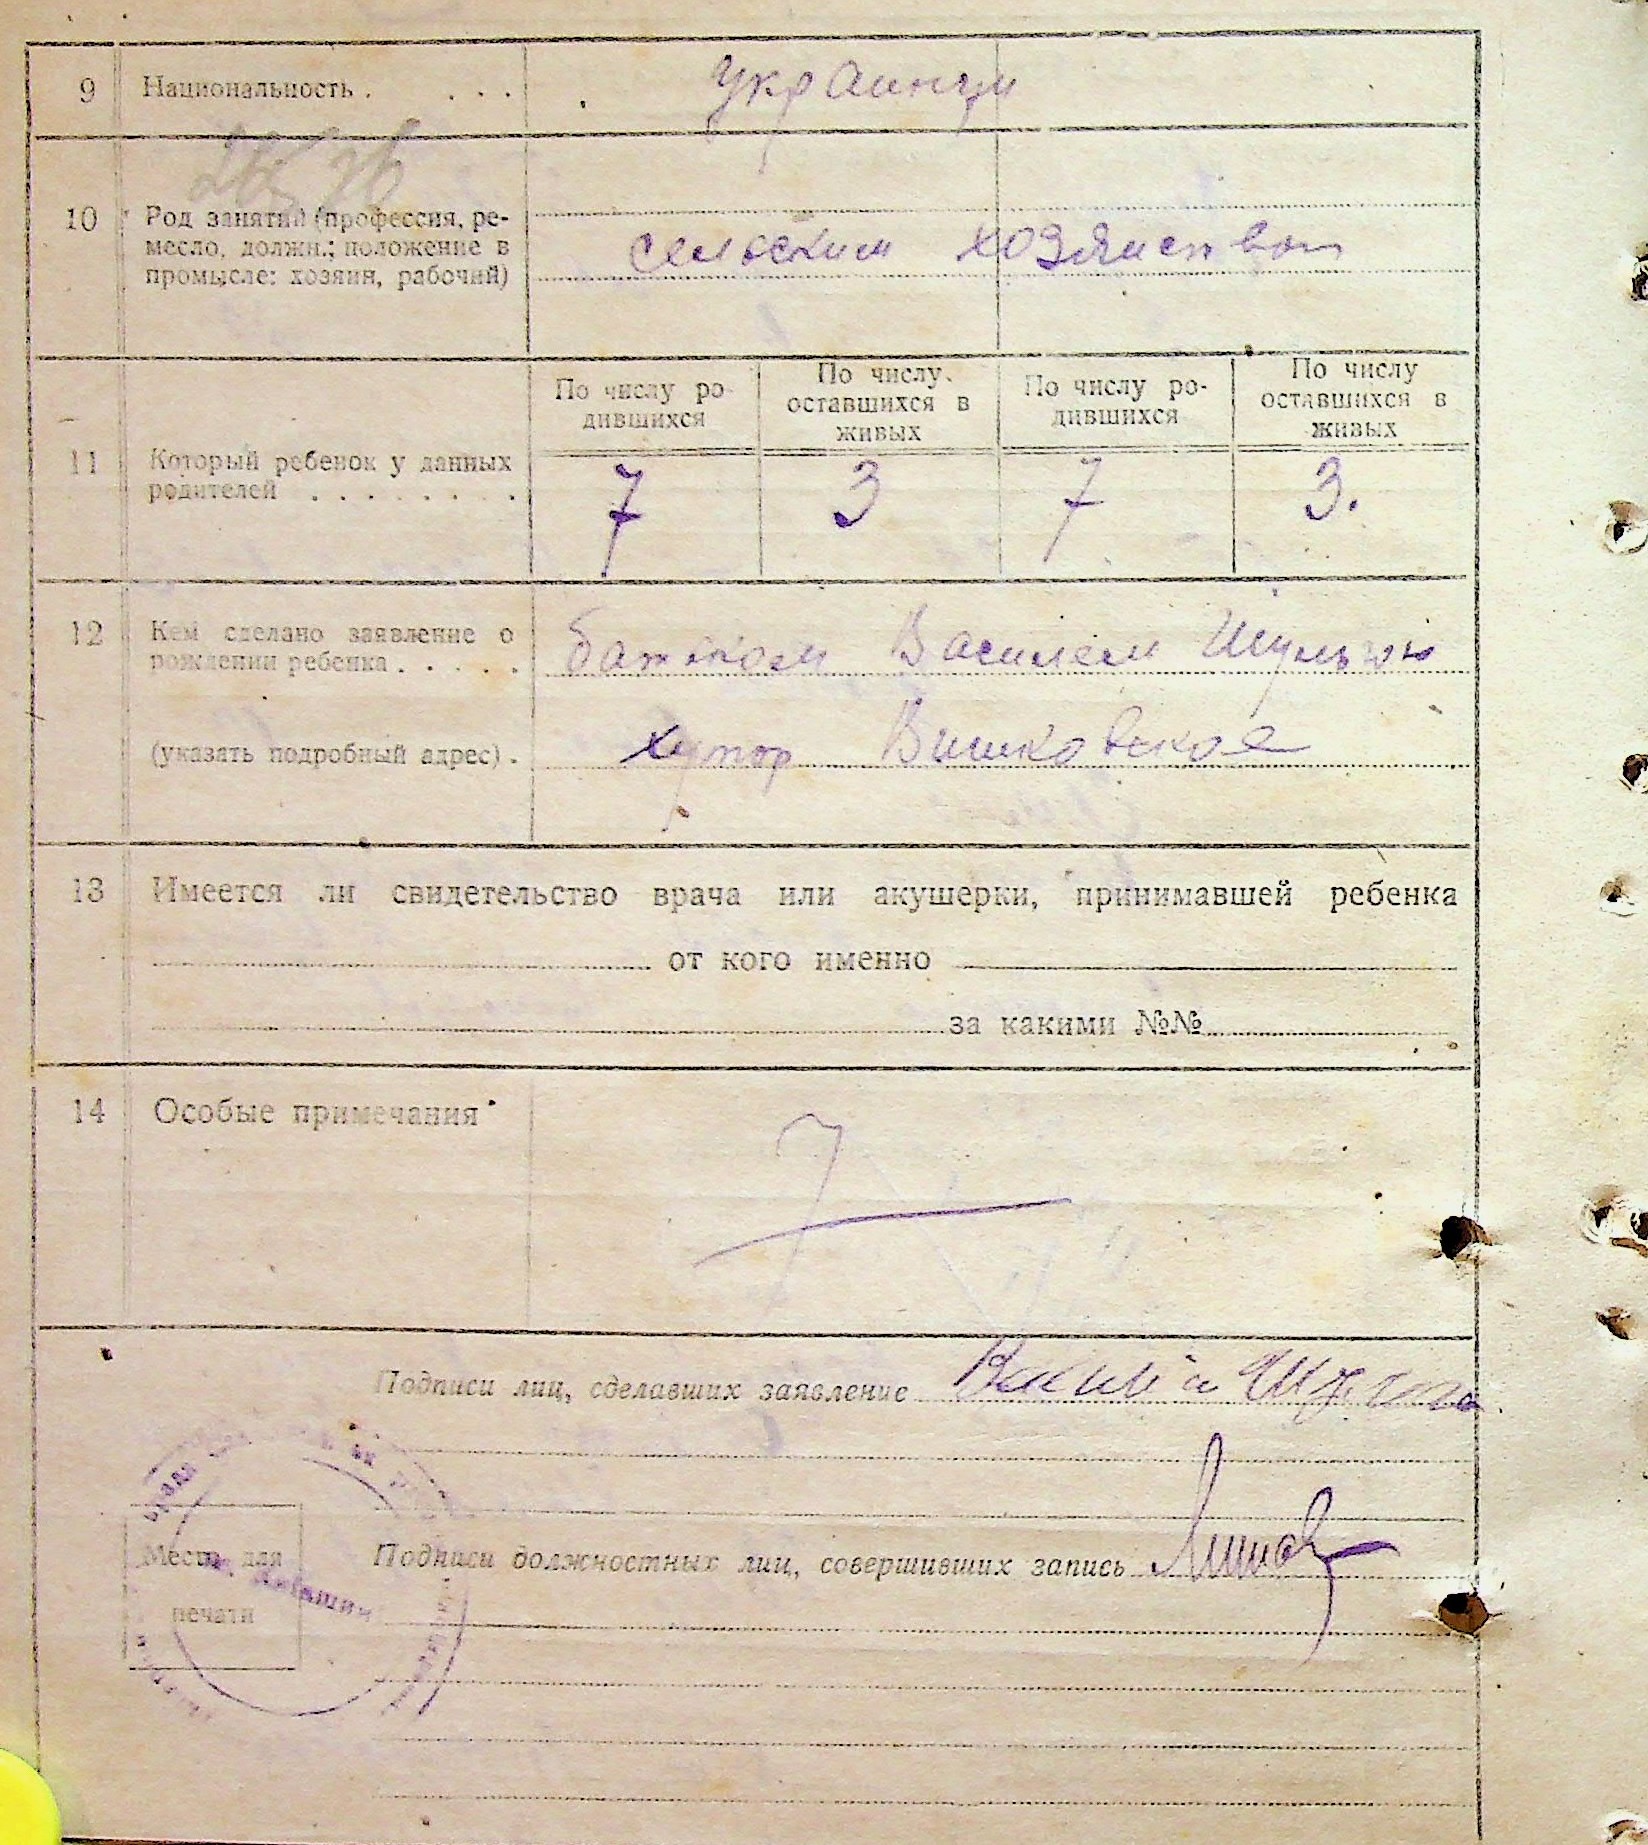 9 Национальность . . . . украинцы
10 Род занятий (профессия, ре-
месло, должн.; положение в
промысле: хозяин, рабочий)
сельским хозяйством
По числу ро-
дившихся
По числу
оставшихся в
живых
По числу ро-
дившихся
По числу
оставшихся в
живых
11 Который ребенок у данных
родителей . . . . . . . .
7 3 7 3.
12 Кем сделано заявление о
рождении ребенка . . . . .
батьком Василем Шульгою
(указать подробный адрес) .
хутор Вишковское
13 Имеется ли свидетельство врача или акушерки, принимавшей ребенка
от кого именно
за какими №№
14 Особые примечания
Подписи лиц, сделавших заявление Василий Шульга
Подписи должностных лиц, совершивших запись
Место для
печати